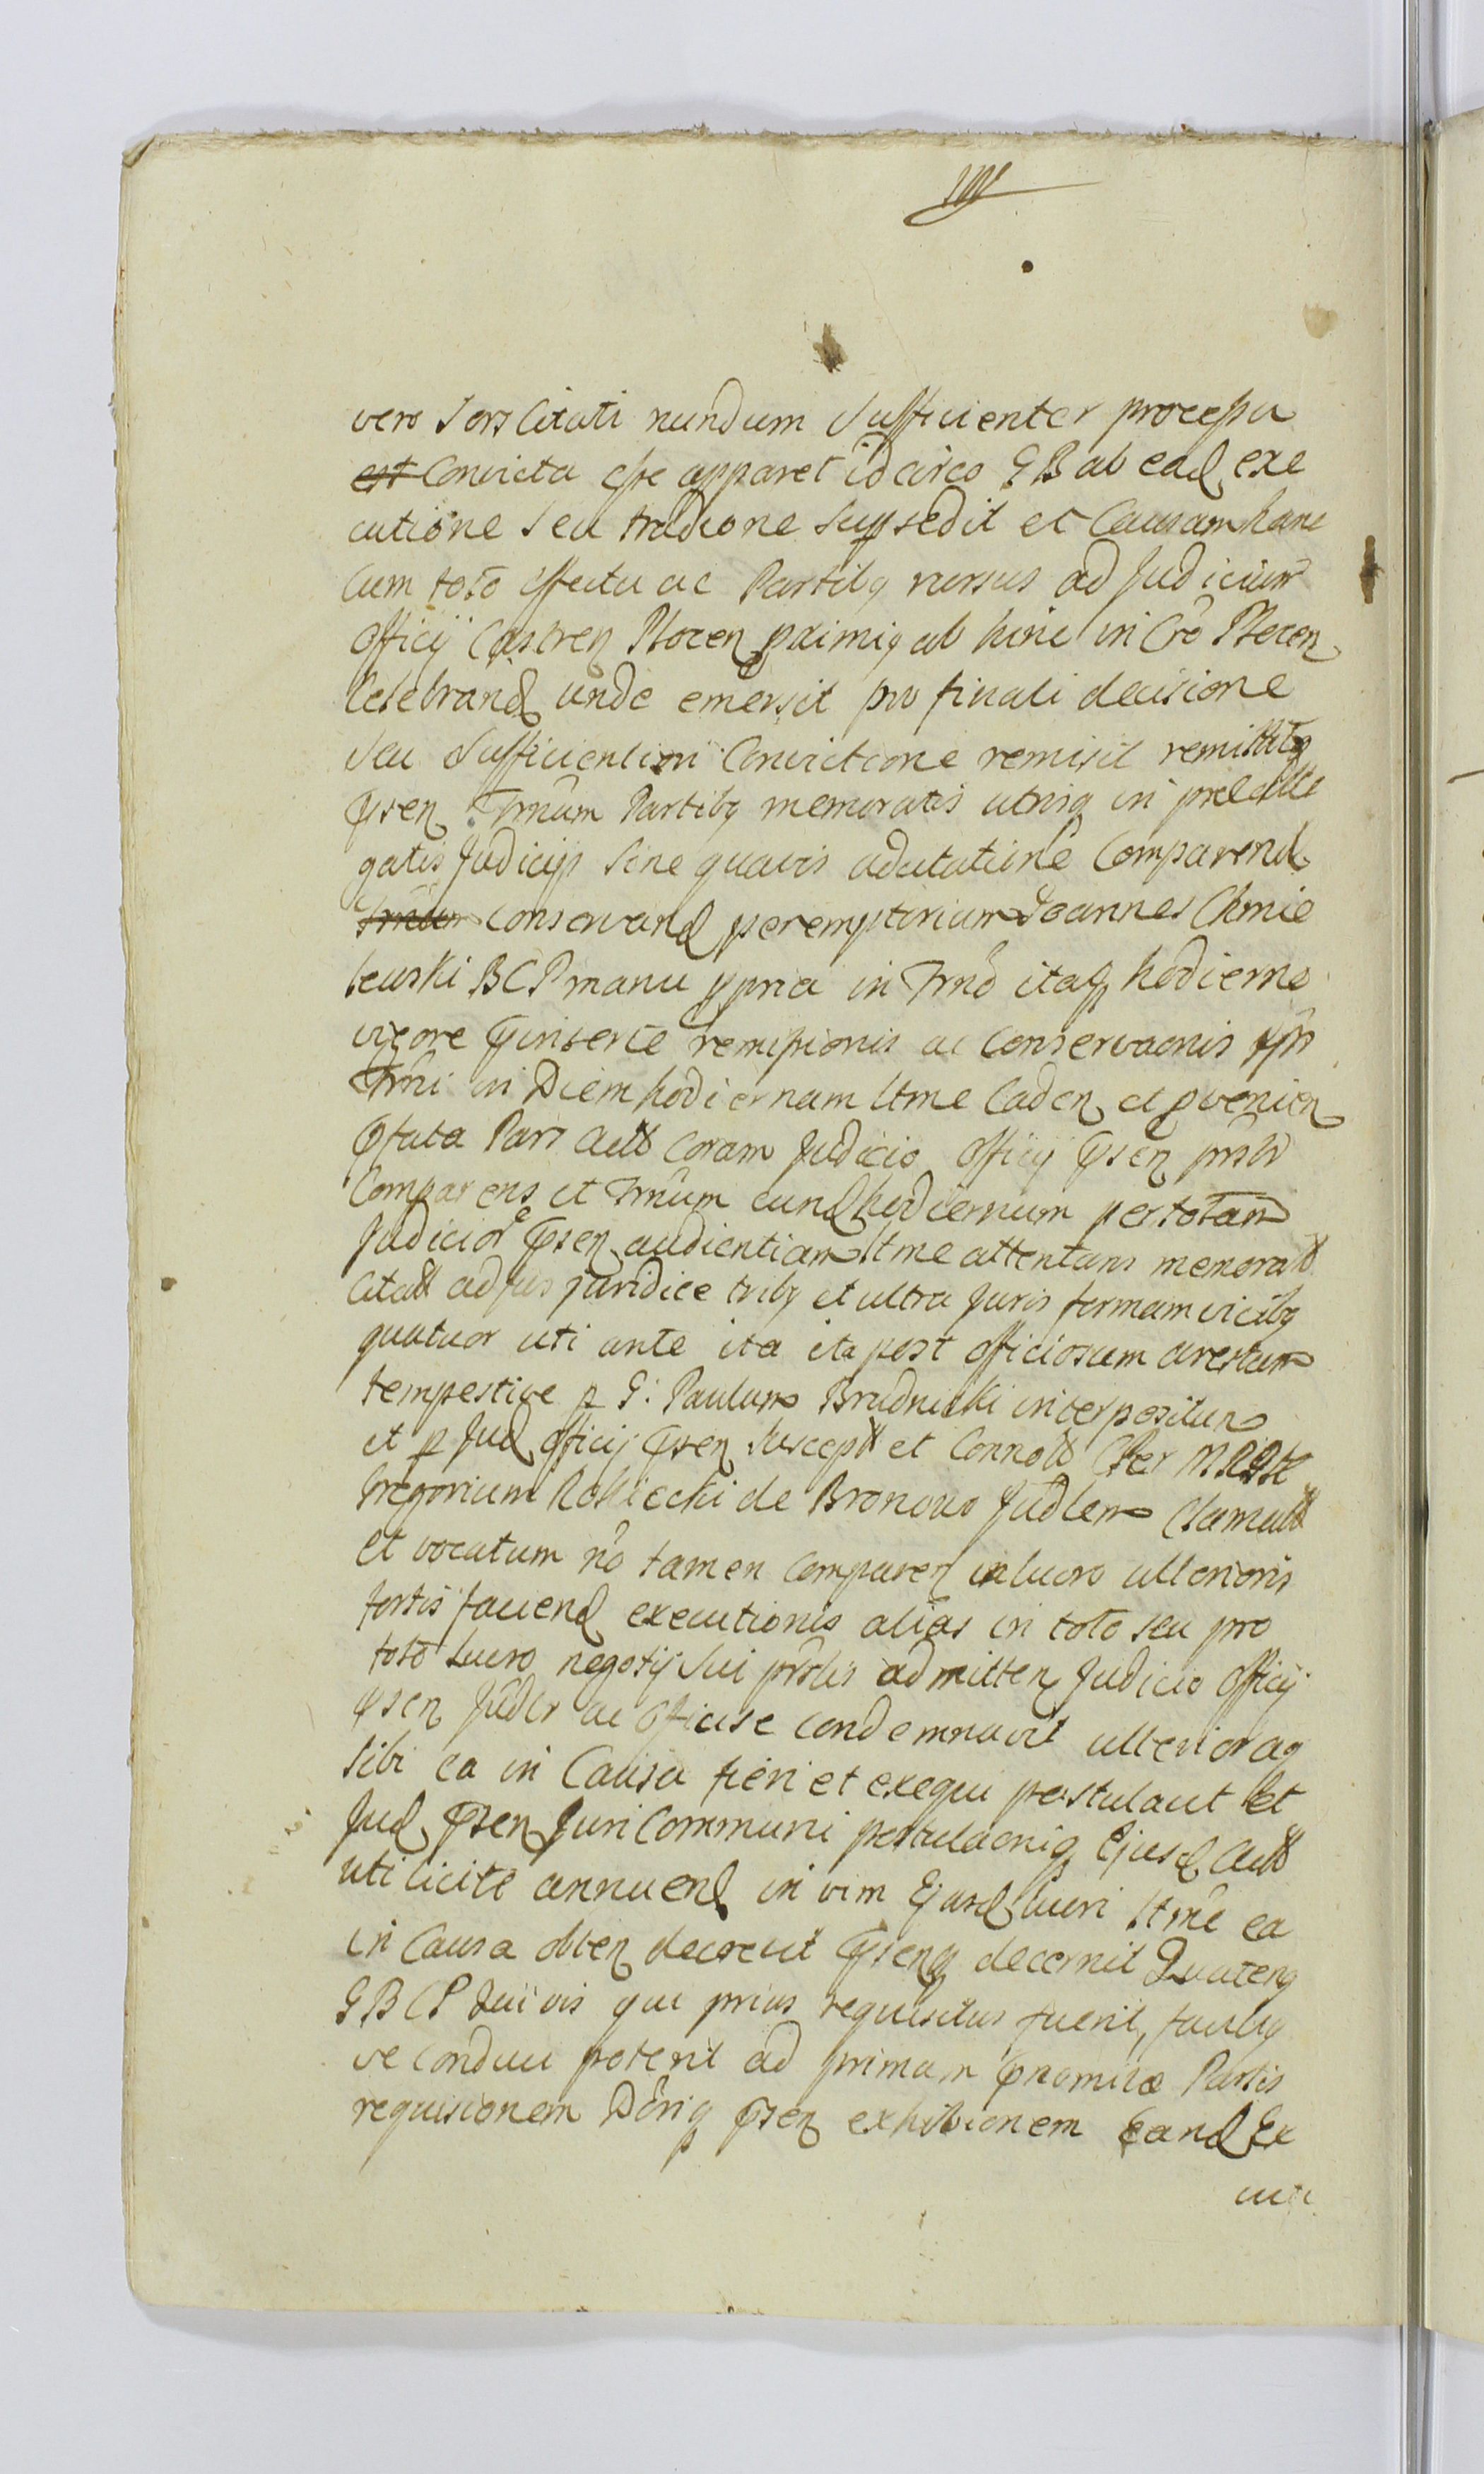 vero Pars Citati nundum Sufficienter processu
est Convicta esse apparet idcirco GB ab ead exe
cutione Seu tradione Supsedit et Causam hanc
Cum toto effectu ac Partibq rursus ad Judicium
Officij Castren Plocen pximiq ab hinc in Cro Plocen
Celebrand unde emersit pro finali decisione
Seu Sufficientiori Convictione remisit remittitq
psen Trnum Partibq memoratis utrisq in prae
gatis Judicijs Sine quavis adcitatione Comparend
Trnum conservand peremptorium Joannes Chmie
lewski BCP manu ppria in Trno itaq hodierno
vigore pinserte remissionis ac conservaonis psn
Trni in Diem hodiernam ltme Caden et pvenien
pfata Pars Actt Coram Judicio Officij psen
Comparens et Trnum eund hodiernum per totam
Judicior psen audientiam ltme attentans memoratt
Citatt ad jus juridice tribq et ultra Juris formam vicibq
quatuor uti ante ita ita post officiosum arestum
tempestive p G: Paulum Brudnicki interpositum
et p Jud Officij psen Suscept et Connott
Gregorium Rokicki de Bronowo Judlem Clamatt
et vocatum no tamen Comparen in lucro ulterioris
fortis faciend executionis alias in toto seu pro
toto Lucro negotij Sui prlis admitten Judicio Officij
psen Judlr ac Officise condemnavit ulterioraq
sibi ea in Causa fieri et exequi postulavit Et
Jud psen Juri Communi postulaoniq Ejusd Actt
uti licite annuend in vim Ejusd lucri ltme ea
in Causa obten decrevit psenq decernit Quatenq
GBCP quivis qui prius requisitus fuerit, faciliq
ve conduci poterit ad primam pnomitae Partis
requisionem Driq psen exhibionem Eand Ex
cuti